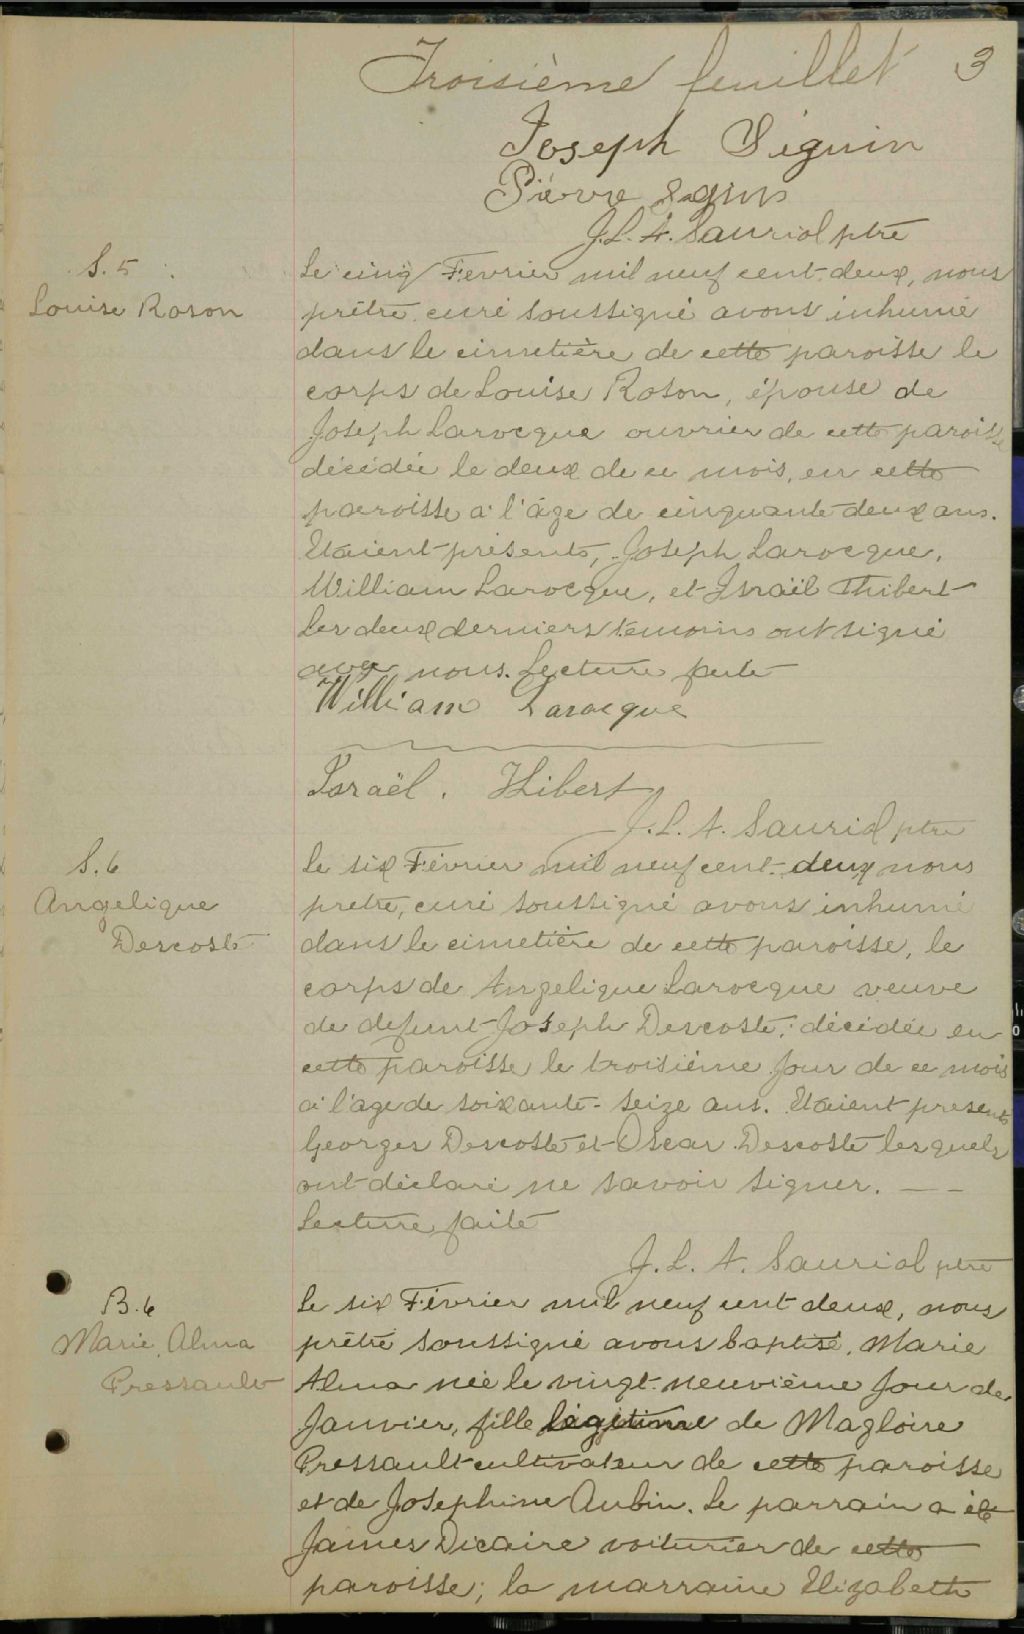 Troisième feuillet 3
Joseph Séguin
Pierre
J. L. A. Sauriol ptre
S. 5
Louise Roson
Le cinq Fevrier mil neuf cent-deux, nous
prêtre curé soussigné avons inhumé
dans le cimetière de cette paroisse le
corps de Louise Roson, épouse de
Joseph Larocque ouvrier de cette paroisse
décédée le deux de ce mois, en cette
paroisse à l'âge de cinquante-deux ans.
Etaient présents, Joseph Larocque,
William Larocque, et Israël Thibert
Les deux derniers temoins ont signé
avec nous. Lecture faite
William Larocque
Israël. Thibert
J. L. A. Sauriol ptre
S. 6
Angelique
Descoste
Le six Février mil neuf cent-deux nous
pretre, curé soussigné avons inhumé
dans le cimetière de cette paroisse, le
corps de Angelique Larocque veuve
de defunt Joseph Descoste; décédée en
cette paroisse le troisième jour de ce mois
à l'age de soixante-seize ans. Etaient presents
Georges Descoste et Oscar Descoste lesquels
ont déclaré ne savoir signer. — —
Lecture faite
J. L. A. Sauriol ptre
B. 6
Marie Alma
Pressault
Le six Février mil neuf cent deux, nous
prêtre soussigné avons baptisé, Marie
Alma née le vingt-neuvième jour de
Janvier, fille légitime de Magloire
Pressault cultivateur de cette paroisse
et de Josephine Aubin. Le parrain a été
James Dicaire voiturier de cette
paroisse; la marraine Elizabeth